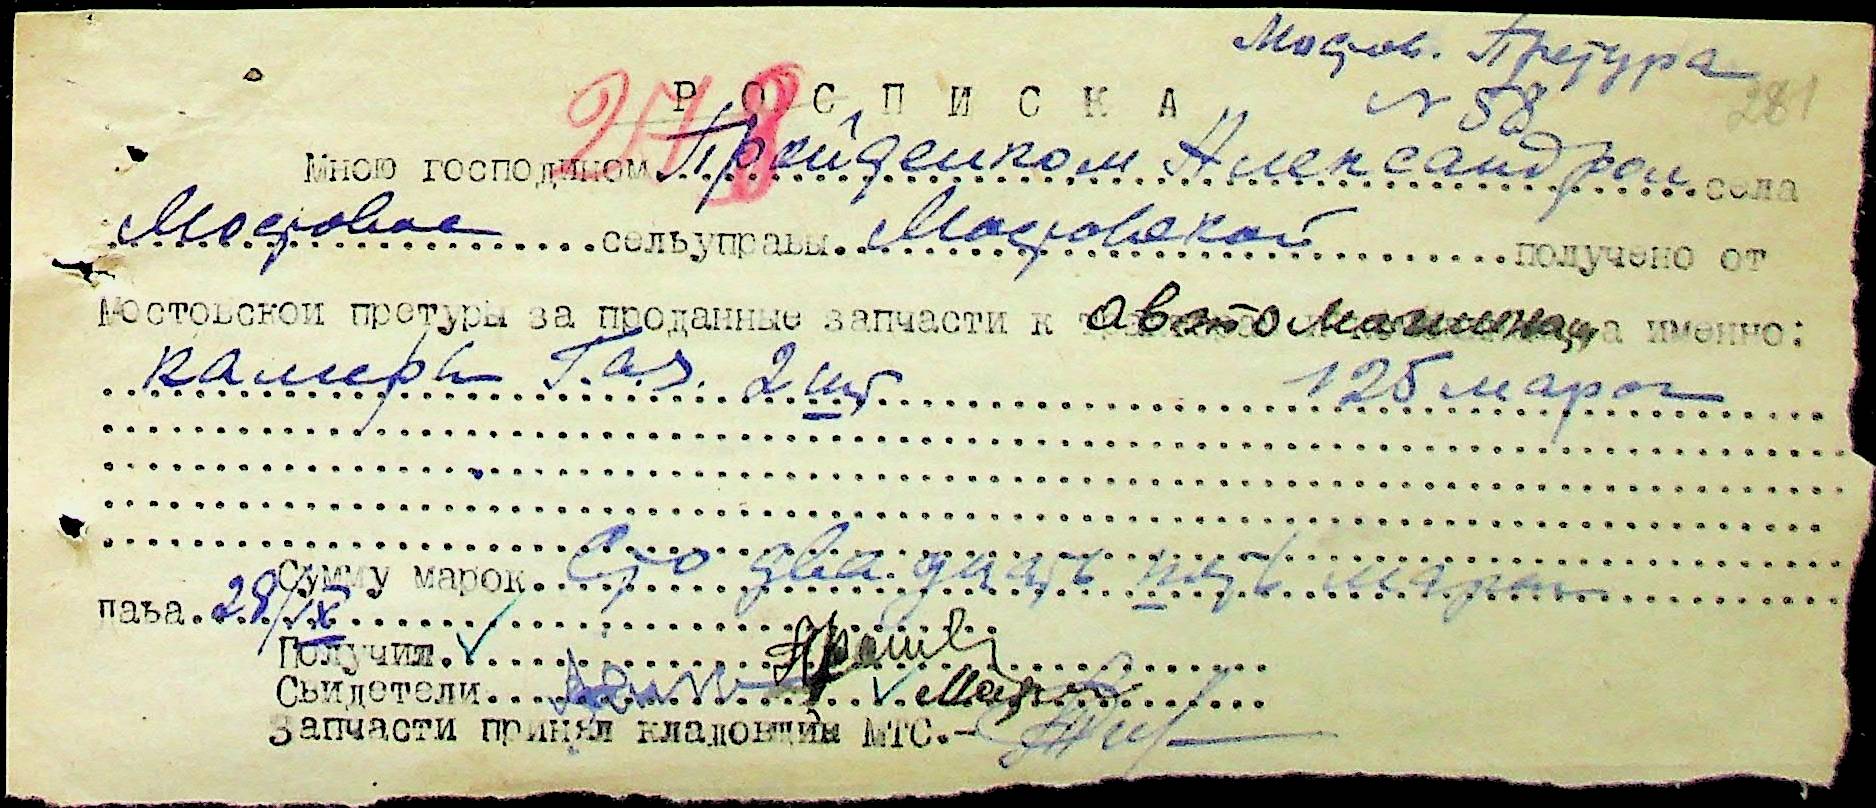 Мостов. Претура
278 Р О С П И С К А № 58 281
Мною господином Прейденком Александром села
Мостовое сельуправы Мостовской получено от
Мостовской претуры за проданные запчасти к автомашинам а именно:
камеры Г.а.з. 2 шт 125 марок
Сумму марок Сто двадцать пять марок
паьа. 28/IX
Получил.
Свидетели
Запчасти принял кладовщик МТС.-